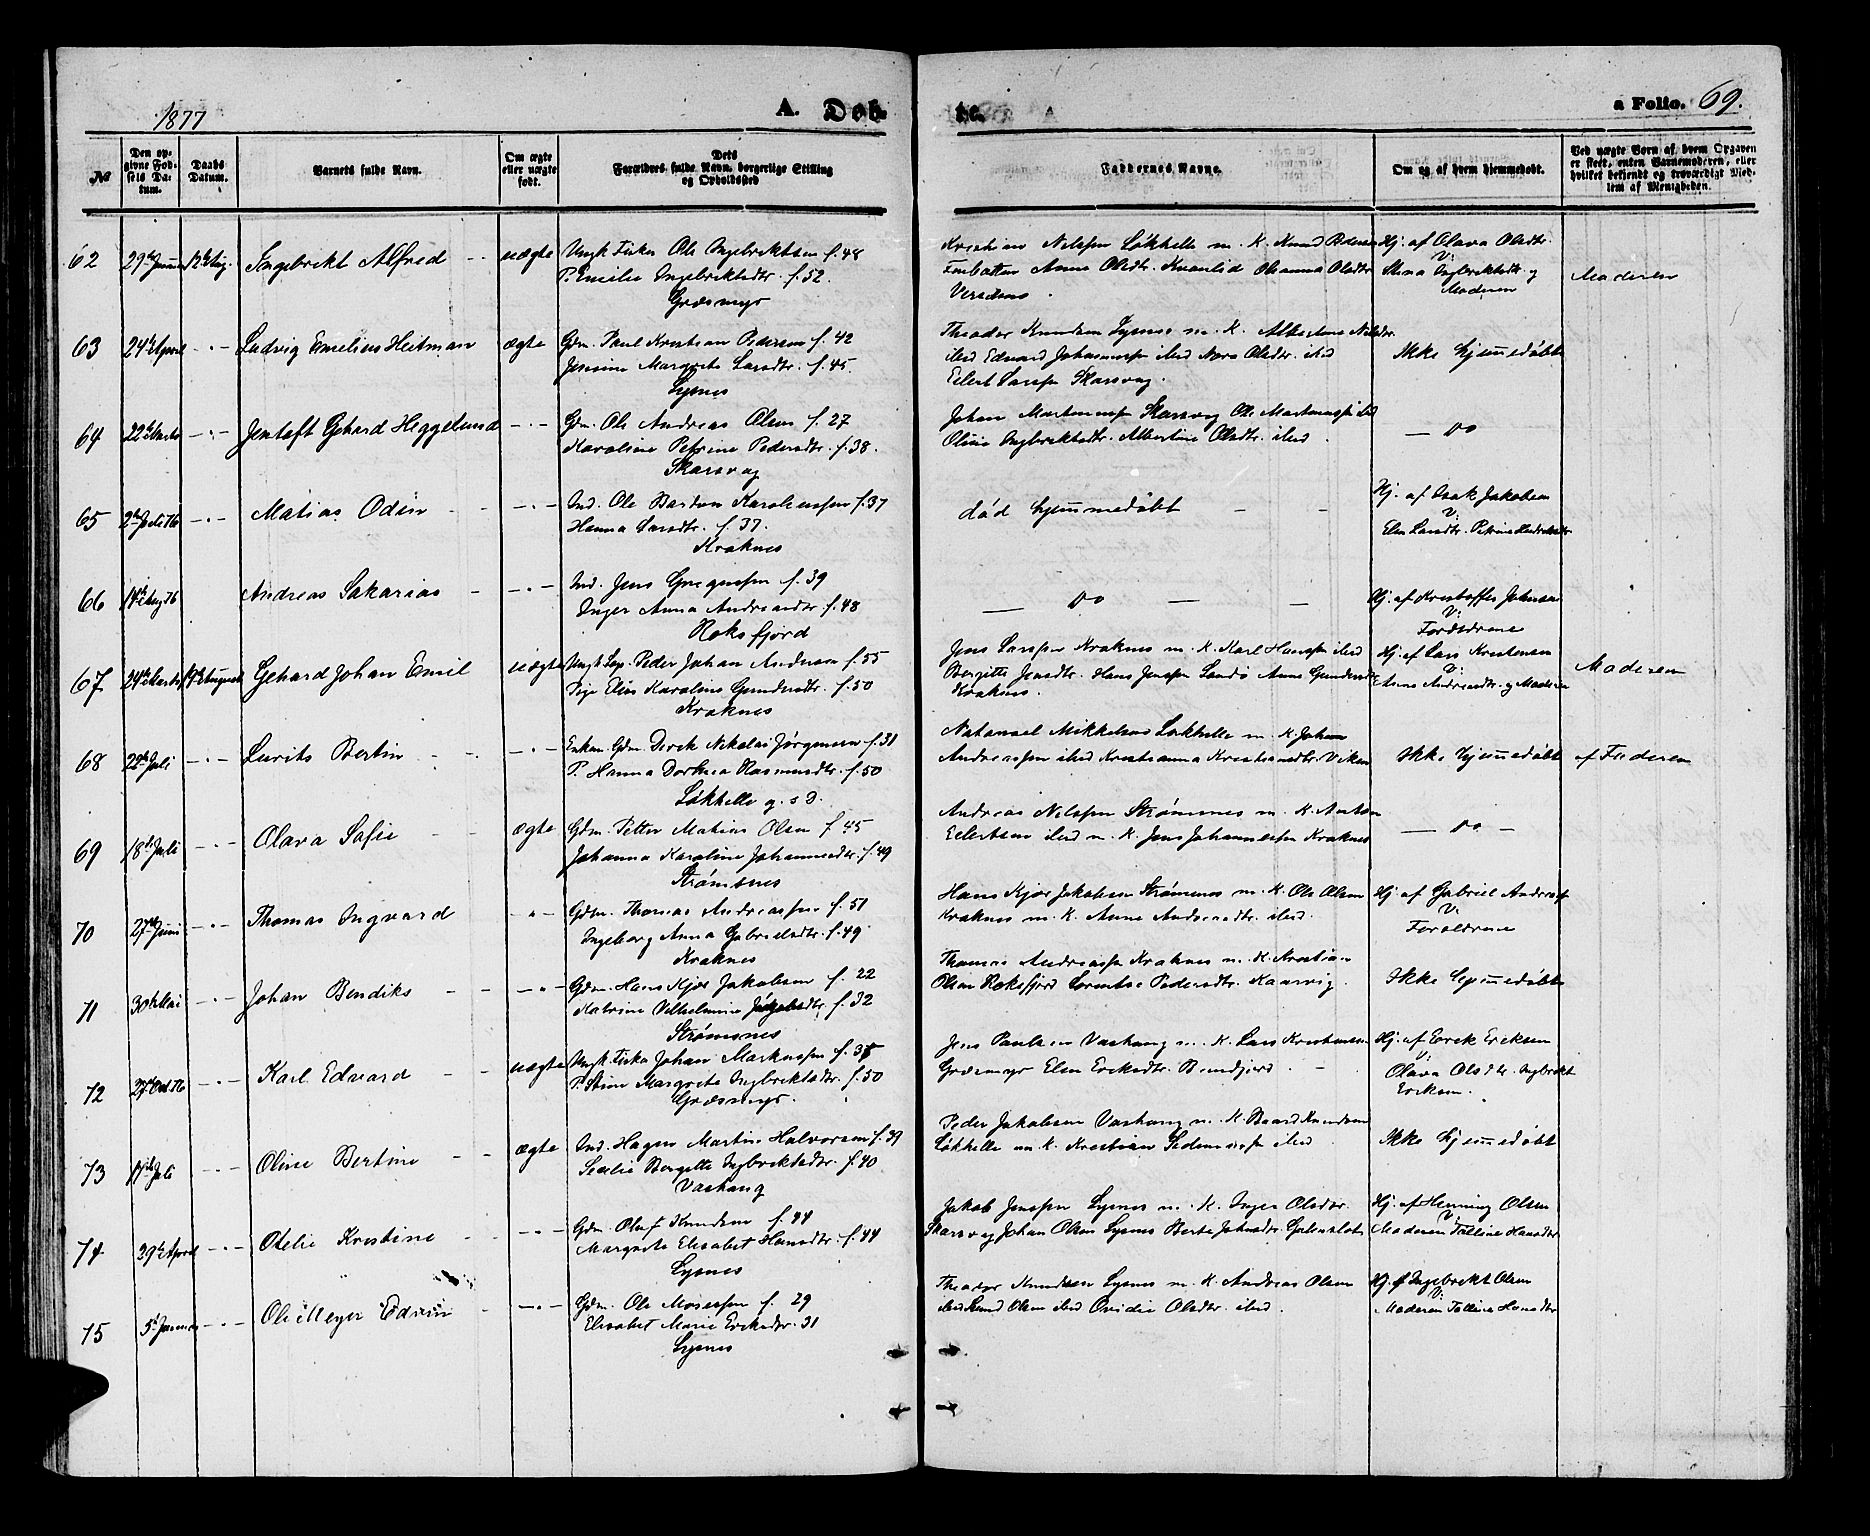 1877
A. Døb-
te.
a Folio. 69.
No
Den op-
givne Fød-
sels Da-
tum.
Daabs
Datum.
Barnets fulde Navn.
Om ægte
eller uægte
født.
Dets
Forældres fulde Navn, borgerlige Stilling
og Opholdssted
Faddernes Navne.
Om og af hvem hjemmedøbt.
Ved uægte Børn af hvem Opgaven
er skeet, enten Barnemoderen, eller
hvilket bekjendt og troværdigt Med-
lem af Menigheden.
62 29de Juni 12te Aug. Ingebrikt Alfred uægte Ungk. Fisker Ole Ingebriktsen f. 48
P. Emilie Ingebriktsdtr. f. 52.
Græsmyr
Kristian Nilssen Løkhelle m. K. Knud Pedersen
Anne Olsdtr. Kvanlid Olianna Olsdtr
Hj. af Olava Olsdtr.
V:
Stina Ingbriktsdtr. og
Moderen
Moderen
63 24de April — " — Ludvig Emelius Heitman ægte Gdm. Paul Kristian Pedersen f. 42
Jensine Margrete Larsdtr. f. 45.
Lysnes
Theodor Knudsen Lysnes m. K. Albertine Nilsdtr.
ibid Edvard Johannessen ibid Nora Olsdtr. ibid
Eilert Larssen Skarsvag.
Ikke hjemmedøbt
64 22de Marts — " — Jentoft Gjhard Heggelund — " — Gdm. Ole Andreas Olsen f. 27
Karoline Petrine Pedersdtr. f. 38.
Skarsvag
Johan Martinussen Skarsvag Ole Martinussen ibid
Oline Ingbriktsdtr. Albertine Olsdtr. ibid.
— Do
65 2den Juli 76 — " — Matias Odin — " — Ind. Ole Bastian Karoliussen f. 37
Hanna Larsdtr. f. 37.
Kraknes
død hjemmedøbt
Hj. af Isak Jakobsen
V:
Elen Larsdtr. Petrine Hendriksdtr
66 14de Aug 76 Andreas Sakarias — " — Ind. Jens Gregussen f. 39
Inger Anna Andreasdtr f. 48
Roksfjord
— Do —
Hj. af Kristoffer Johnsen
V:
Forældrene
67 24de Marts 19de August Gehard Johan Emil uægte Ungk. Peder Johan Andersen f. 55
Pige Elen Karoline Gundersdtr. f. 50
Kraknes
Jens Larssen Kraknes m. K. Karl Hanssen ibid
Bergitte Jensdtr. Hans Jenssen Sandø Anne Gundersdtr
Kraknes.
Hj. af Lars Kristensen
V:
Anne Andreasdtr. og Moderen
Moderen
68 22de Juli — " — Laurits Bertin — " — Enkem. Gdm. Dirik Nikolai Jørgensen f. 31
P. Hanna Dorthea Rasmusdtr. f. 50
Løkhelle g. s. d.
Natanael Mikkelsen Løkhelle m. K. Johan
Andreassen ibid Kristianna Kristiansdtr. Viken
Ikke hjemmedøbt
af Faderen
69 18de Juli — " — Olava Sofie ægte Gdm. Petter Matias Olsen f. 45
Johanna Karoline Johannesdtr. f. 49
Strømsnes
Andreas Nilssen Strømsnes m. K. Anton
Eilertsen ibid m. K. Jens Johannessen Kraknes
— Do —
70 27de Juni — " — Thomas Ingvard — " — Gdm. Thomas Andreassen f. 51
Ingeborg Anna Gabrielsdtr. f. 49.
Kraknes
Hans Kjær Jakobsen Strømsnes m. K. Ole Olsen
Kraknes m. K. Anne Andreasdtr. ibid.
Hj. af Gabriel Andreassen
V:
Forældrene
71 30te Mai — " — Johan Bendiks — " — Gdm. Hans Kjær Jakobsen f. 22
Katrine Vilhelmine f. 32
Strømsnes
Thomas Andreassen Kraknes m. K. Kristian
Olsen Roksfjord Lorentse Pedersdtr. Kaarvig.
Ikke hjemmedøbt
72 27de Oct 76 — " — Karl Edvard uægte Ungk. Fisker Johan Markussen f. 37
P. Stine Margrete Ingbriktsdtr. f. 50
Græsmyr.
Jens Paulsen Vashaug m. K. Lars Kristensen
Græsmyr Elen Eriksdtr.
Hj. af Eerik Eriksen
V:
Olava Olsdtr. Ingbrikt
Eriksen.
73 17de Juli — " — Oline Bertine ægte Ind. Hagen Martin Halvorsen f. 39
Sesilie Bergitte Ingbriktsdtr. f. 40
Vashaug
Peder Jakobsen Vashaug m. K. Baard Knudsen
Løkhelle m. K. Kristian ibid
Ikke hjemmedøbt
74 29de April — " — Otelie Kristine — " — Gdm. Olaf Knudsen f. 44
Margrete Elisabet Hansdtr. f. 44
Lysnes
Jakob Jenssen Lysnes m. K. Inger Olsdtr.
Skarsvag Johan Olsen Lysnes Berte Johnsdtr.
Hj. af Henning Olsen
V:
Moderen Talline Hansdtr
75 5te Januar — " — Ole Meyer Edvin — " — Gdm. Ole Mosessen f. 29
Elisabet Marie Eriksdtr. 31
Lysnes
Theodor Knudsen Lysnes m. K. Andreas Olsen
ibid Knud Olsen ibid Ovidie Olsdtr. ibid.
Hj. af Ingebrikt Olsen
V:
Moderen Talline Hansdtr